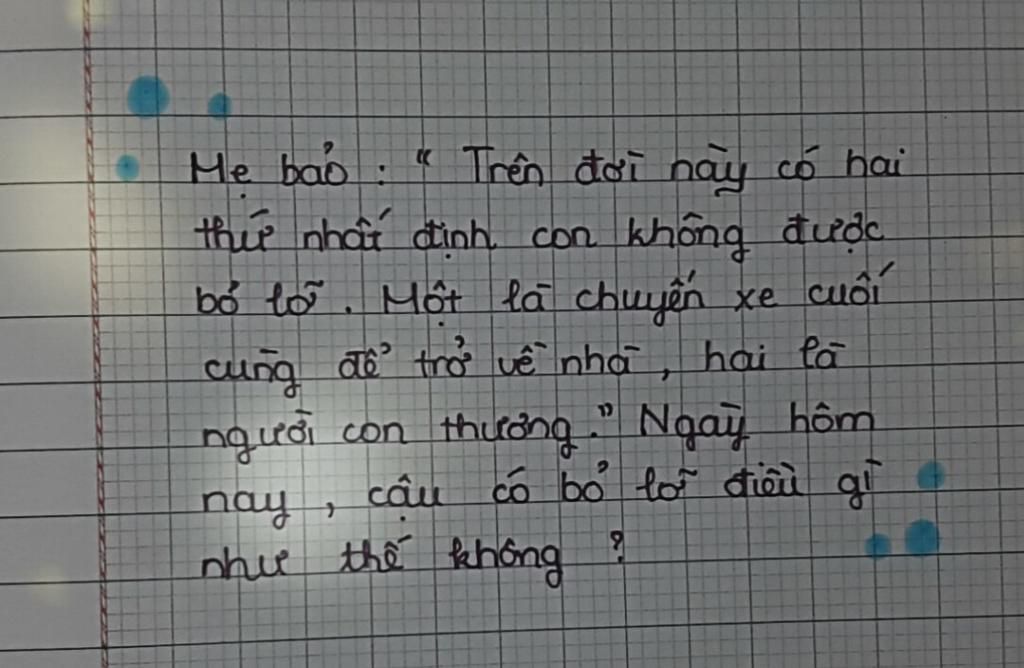 Mẹ bảo : “ Trên đời này có hai
thứ nhất định con không được
bỏ lỡ . Một là chuyến xe cuối
cùng để trở về nhà , hai là
người con thương .” Ngày hôm
nay , cậu có bỏ lỡ điều gì
như thế không ?